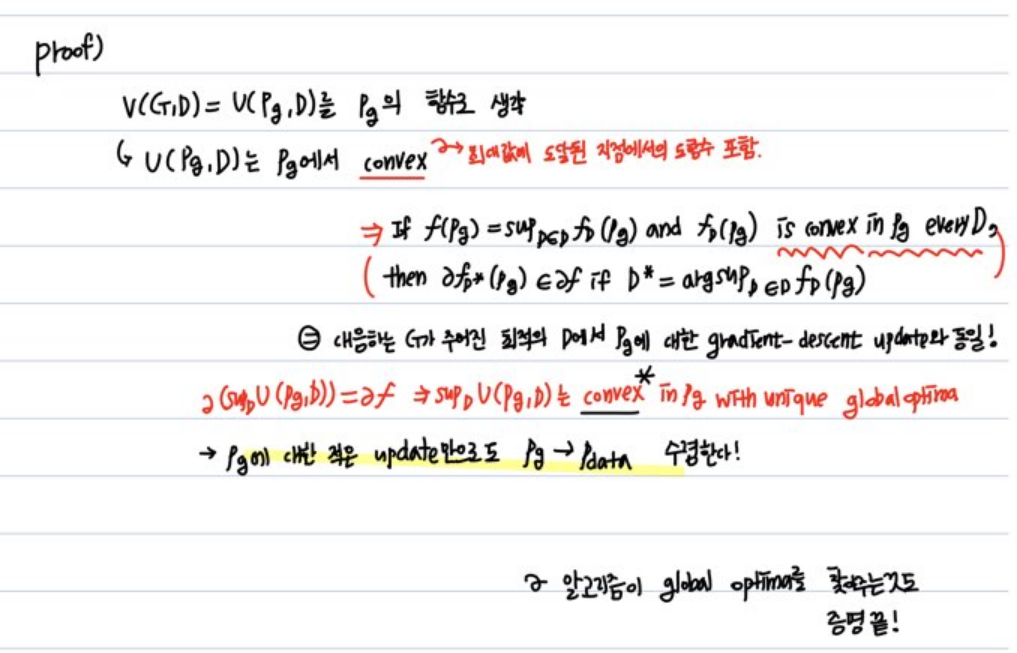 proof)
V(G,D) = U(Pg,D)를 Pg의 함수로 생각
↳ U(Pg,D)는 Pg에서 convex → 최대값에 도달된 지점에서의 도함수 포함.
⇒ If f(Pg) = sup_{D∈D} f_D(Pg) and f_D(Pg) is convex in Pg every D,
then ∂f_{D*}(Pg) ∈ ∂f if D* = argsup_{D∈D} f_D(Pg)
⊜ 대응하는 G가 주어진 최적의 D에서 Pg에 대한 gradient-descent update와 동일!
∂(sup_D U(Pg,D)) = ∂f ⇒ sup_D U(Pg,D)는 convex* in Pg with unique global optima
→ Pg에 대한 적은 update만으로도 Pg → Pdata 수렴한다!
알고리즘이 global optima를 찾아주는것도
증명 끝!